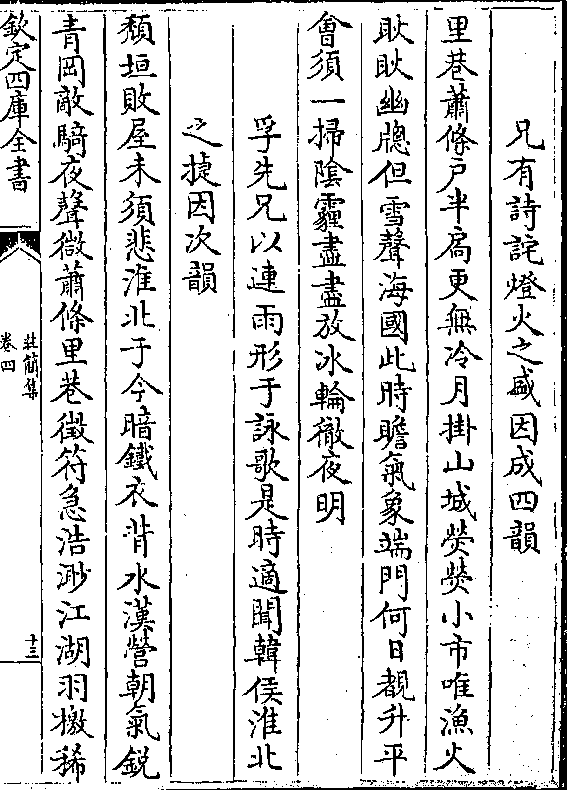 兄有詩詫燈火之盛因成四韻
里巷蕭條戸半扃更無冷月掛山城熒熒小市唯漁火
耿耿幽牕但雪聲海國此時瞻氣象端門何日覩升平
㑹須一掃陰霾盡盡放冰輪徹夜明
孚先兄以連雨形于詠歌是時適聞韓侯淮北
之捷因次韻
頽垣敗屋未須悲淮北于今暗鐵衣背水漢營朝氣銳
青岡敵騎夜聲微蕭條里巷徵符急浩渺江湖羽檄稀
欽定四庫全書
莊簡集
卷四
十三